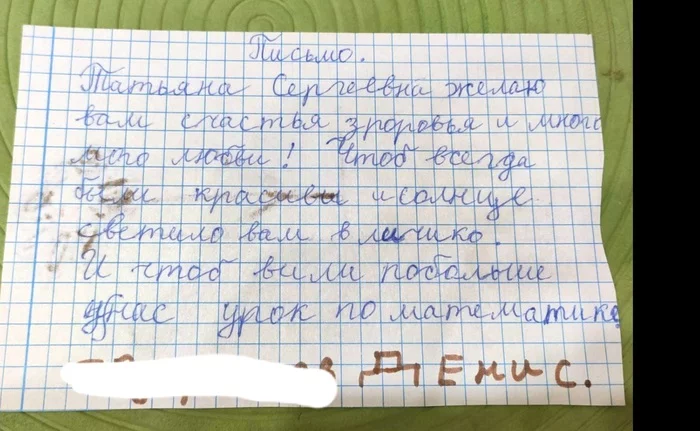 Письмо.
Татьяна Сергеевна желаю
вам счастья здоровья и много
много любви! Чтоб всегда
были красивы и солнце
светило вам в личико.
И чтоб вили побольше
у нас урок по математике
Денис.